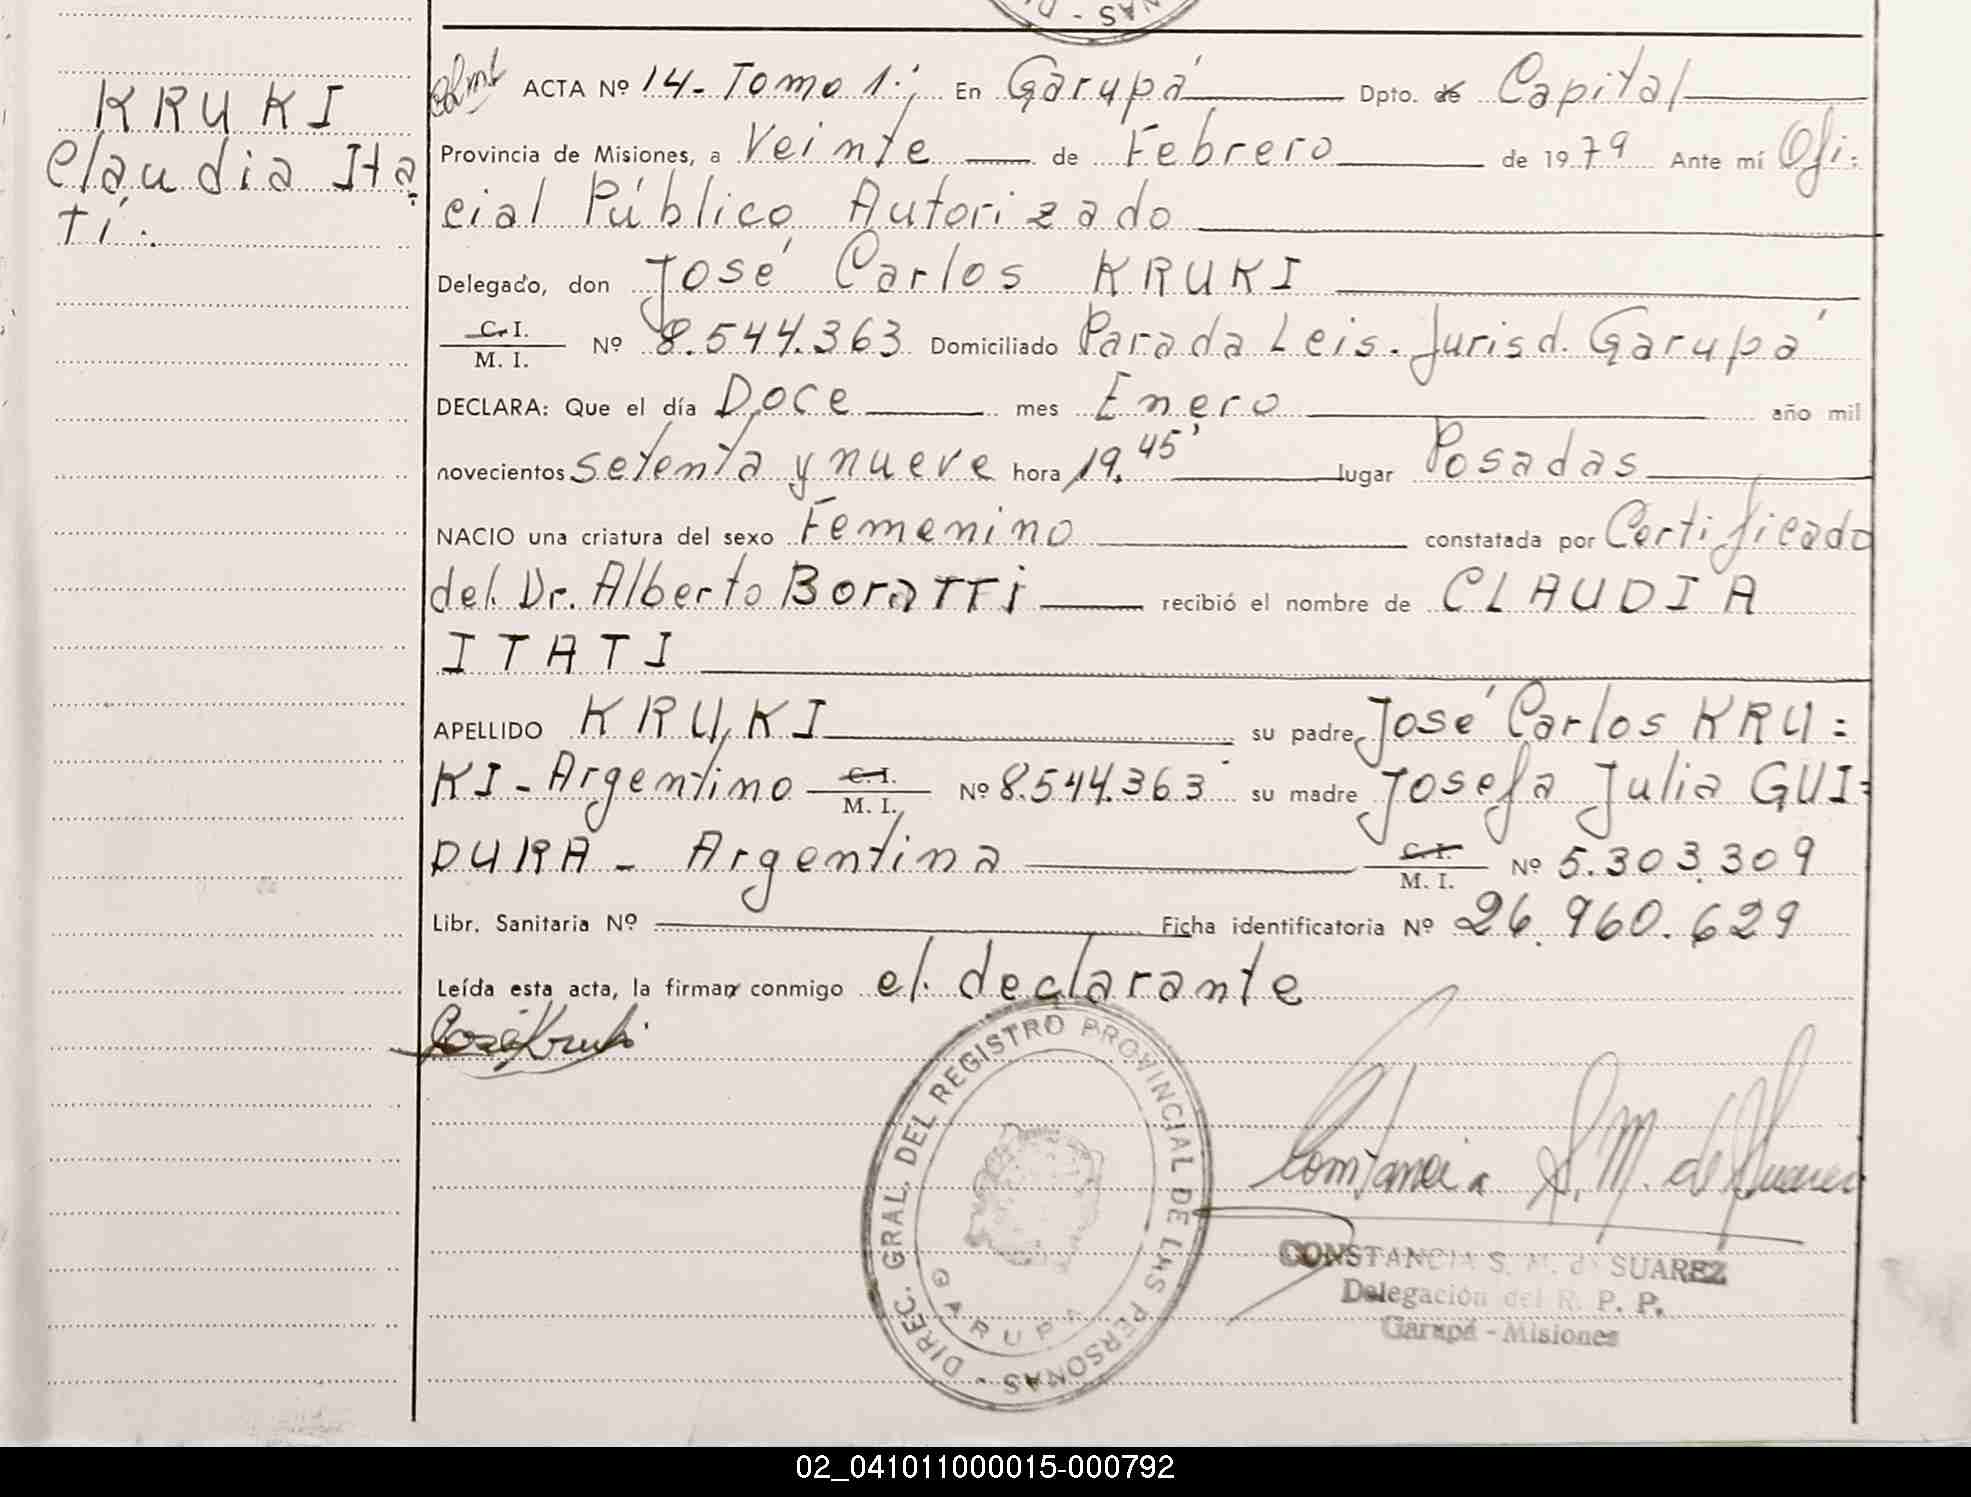 NAS - DI
KRUKI
Claudia Ita:
tí.
ACTA Nº 14.- Tomo 1.; En Garupá Dpto. de Capital
Provincia de Misiones, a Veinte de Febrero de 1979 Ante mí Ofi:
cial Público Autorizado
Delegado, don José Carlos KRUKI
C. I.
M. I. Nº 8.544.363 Domiciliado Parada Leis. Jurisd. Garupá
DECLARA: Que el día Doce mes Enero año mil
novecientos setenta y nueve hora 19.45' lugar Posadas
NACIO una criatura del sexo Femenino constatada por Certificado
del Dr. Alberto BoraTTi recibió el nombre de CLAUDIA
ITATI
APELLIDO KRUKI su padre José Carlos KRU=
KI - Argentino C. I. M. I. Nº 8.544.363 su madre Josefa Julia GUI=
DURA - Argentina C. I. M. I. Nº 5.303.309
Libr. Sanitaria Nº Ficha identificatoria Nº 26.960.629
Leída esta acta, la firman conmigo el declarante
José Kruki
DIREC. GRAL. DEL REGISTRO PROVINCIAL DE LAS PERSONAS -
GARUPA
Constancia S. M. de Suarez
CONSTANCIA S. M. de SUAREZ
Delegación del R. P. P.
Garupá - Misiones
02_041011000015-000792